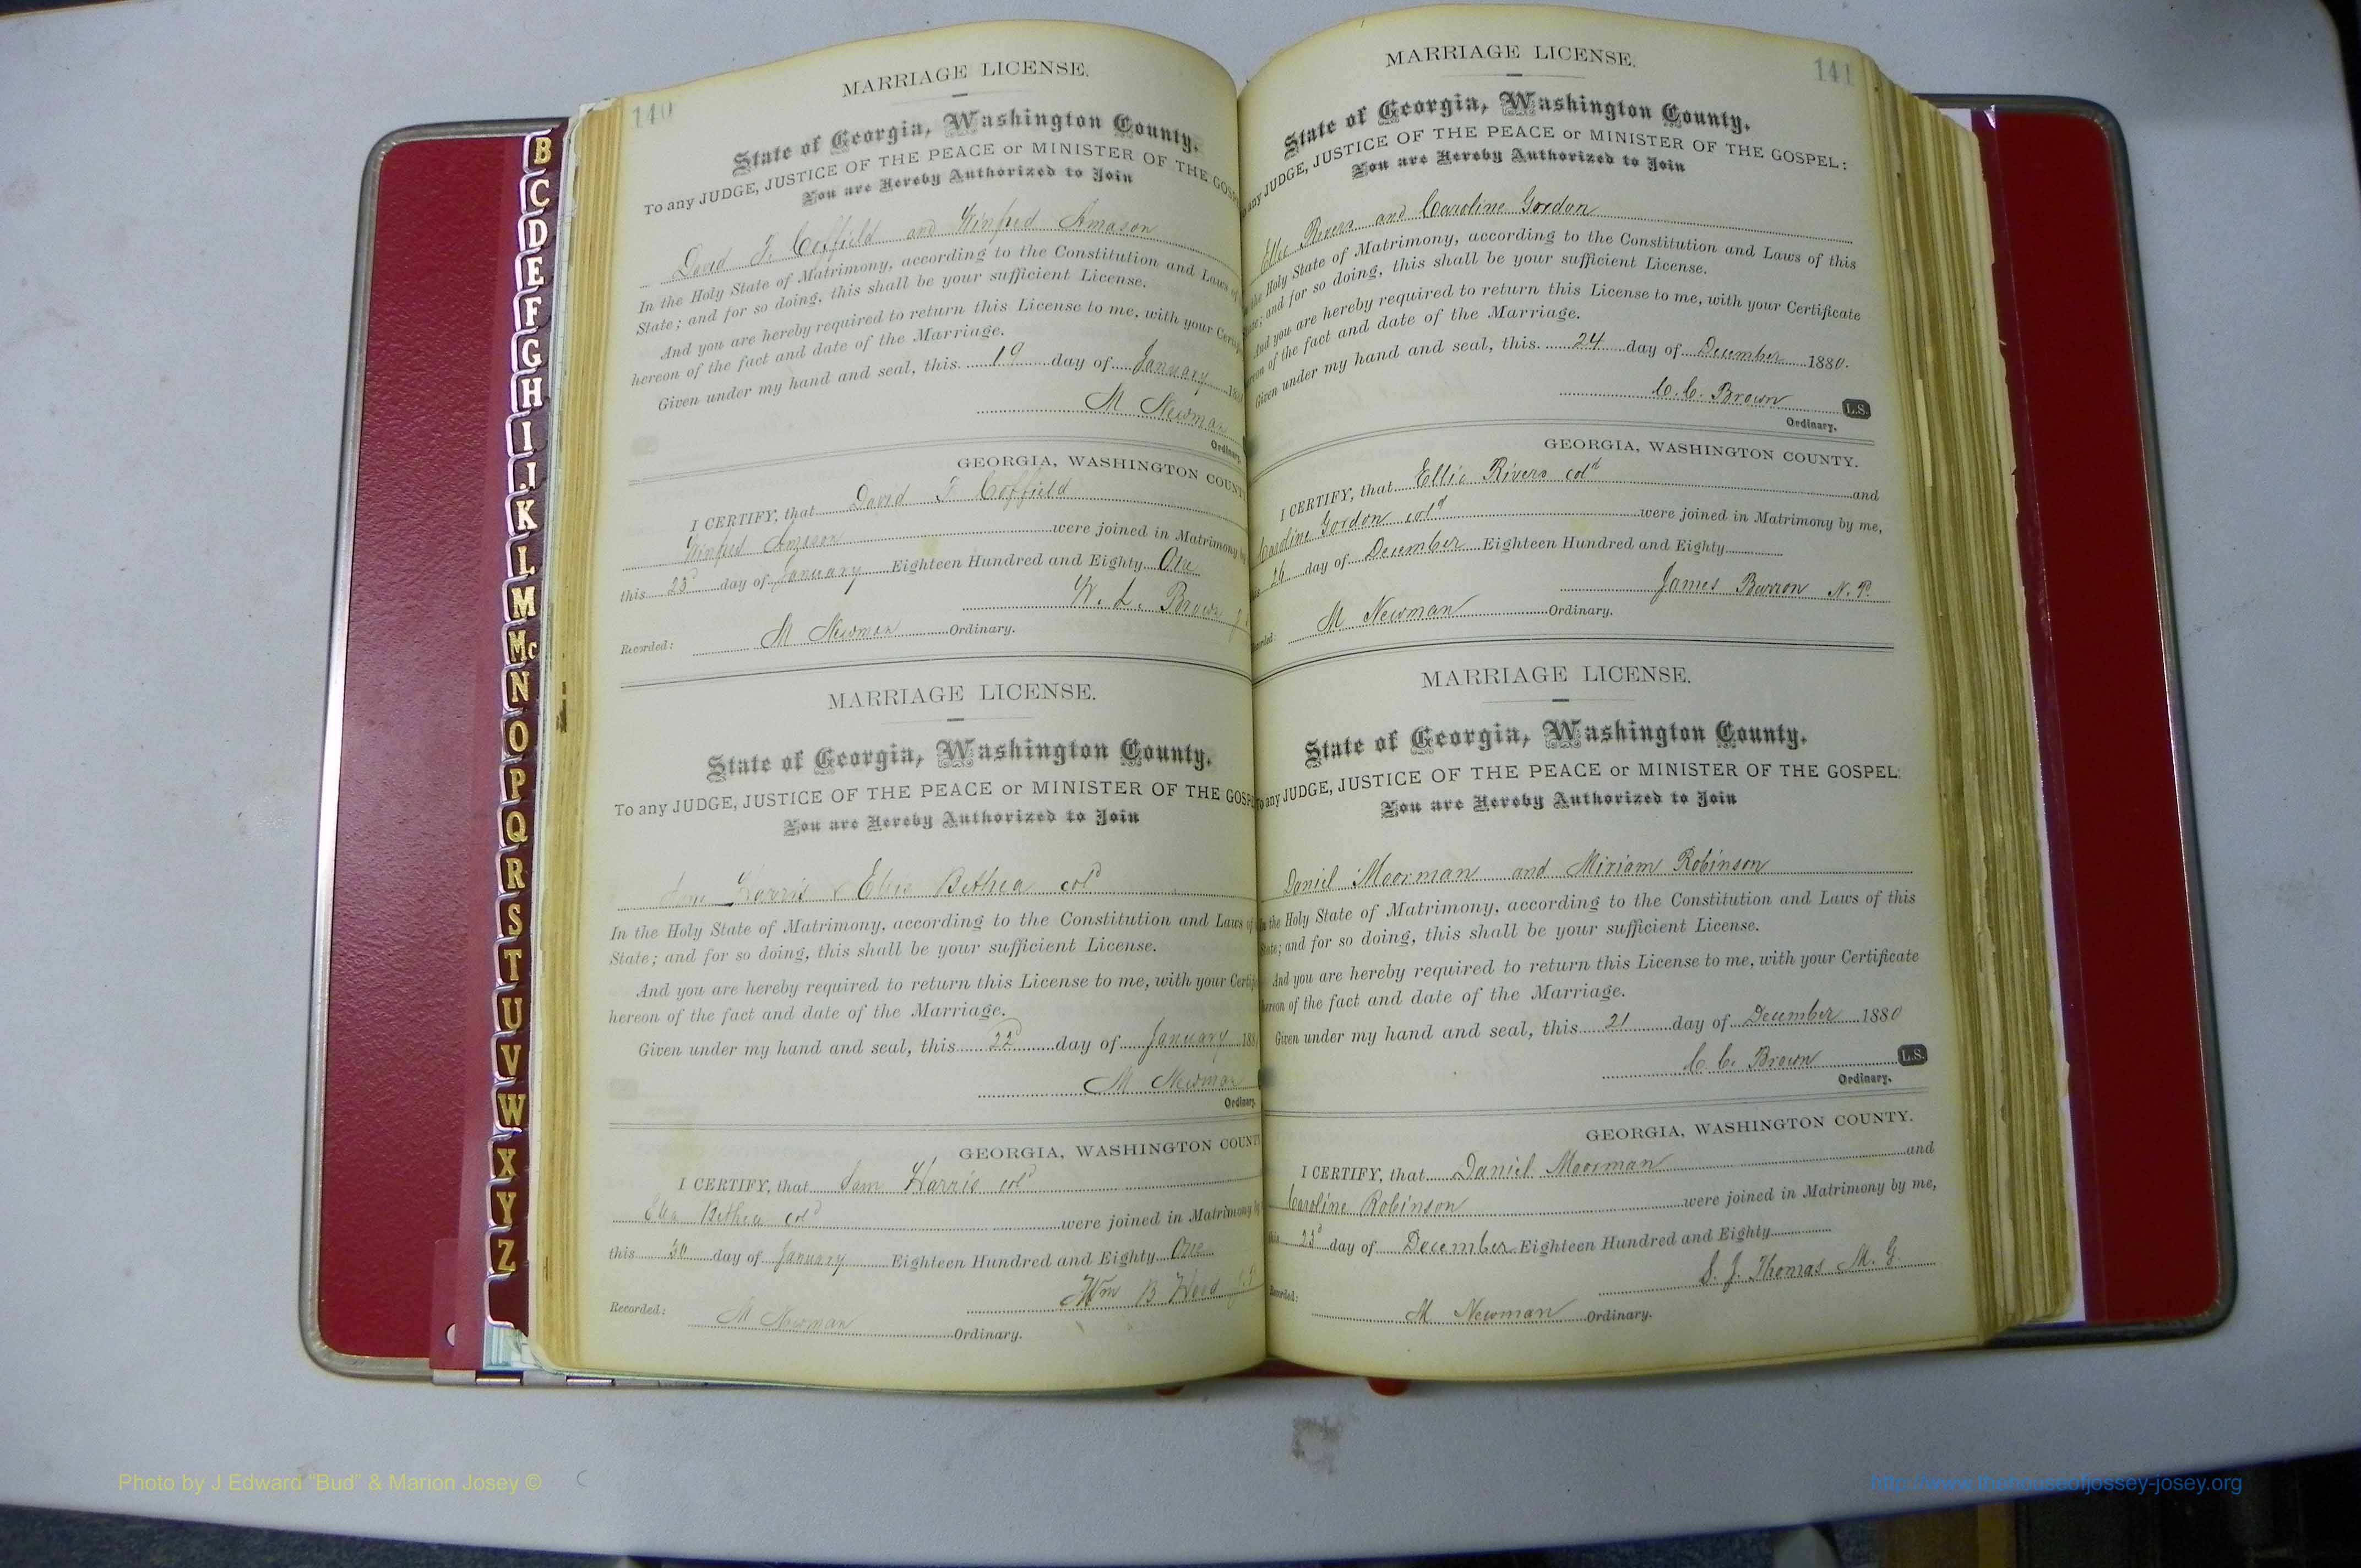 140
MARRIAGE LICENSE.
State of Georgia, Washington County.
To any JUDGE, JUSTICE OF THE PEACE or MINISTER OF THE GOSP
You are Hereby Authorized to Join
David F. Coffield and Winfred Amason
In the Holy State of Matrimony, according to the Constitution and Laws of
State; and for so doing, this shall be your sufficient License.
And you are hereby required to return this License to me, with your Certif
hereon of the fact and date of the Marriage.
Given under my hand and seal, this 19 day of January 188
M Newman
Ordinary.
GEORGIA, WASHINGTON COUNT
I CERTIFY, that David F. Coffield
Winfred Amason were joined in Matrimony by
this 23d day of January Eighteen Hundred and Eighty One
W. L. Brown J.
Recorded: M Newman Ordinary.
MARRIAGE LICENSE.
State of Georgia, Washington County.
To any JUDGE, JUSTICE OF THE PEACE or MINISTER OF THE GOSP
You are Hereby Authorized to Join
Sam Harris & Ella Bethea cold
In the Holy State of Matrimony, according to the Constitution and Laws of
State; and for so doing, this shall be your sufficient License.
And you are hereby required to return this License to me, with your Certif
hereon of the fact and date of the Marriage.
Given under my hand and seal, this 22d day of January 188
M Newman
Ordinary.
GEORGIA, WASHINGTON COUNT
I CERTIFY, that Sam Harris cold
Ella Bethea cold were joined in Matrimony by
this 30 day of January Eighteen Hundred and Eighty One
Wm B. J.P.
Recorded: M Newman Ordinary.
141
MARRIAGE LICENSE.
State of Georgia, Washington County.
To any JUDGE, JUSTICE OF THE PEACE or MINISTER OF THE GOSPEL:
You are Hereby Authorized to Join
Ellic Rivers and Caroline Gordon
In the Holy State of Matrimony, according to the Constitution and Laws of this
State; and for so doing, this shall be your sufficient License.
And you are hereby required to return this License to me, with your Certificate
hereon of the fact and date of the Marriage.
Given under my hand and seal, this 24 day of December 1880.
C. C. Brown L.S.
Ordinary.
GEORGIA, WASHINGTON COUNTY.
I CERTIFY, that Ellic Rivers cold and
Caroline Gordon cold were joined in Matrimony by me,
this 26 day of December Eighteen Hundred and Eighty
James Barron N.P.
Recorded: M Newman Ordinary.
MARRIAGE LICENSE.
State of Georgia, Washington County.
To any JUDGE, JUSTICE OF THE PEACE or MINISTER OF THE GOSPEL:
You are Hereby Authorized to Join
Daniel Moorman and Miriam Robinson
In the Holy State of Matrimony, according to the Constitution and Laws of this
State; and for so doing, this shall be your sufficient License.
And you are hereby required to return this License to me, with your Certificate
hereon of the fact and date of the Marriage.
Given under my hand and seal, this 21 day of December 1880
C. C. Brown L.S.
Ordinary.
GEORGIA, WASHINGTON COUNTY.
I CERTIFY, that Daniel Moorman and
Caroline Robinson were joined in Matrimony by me,
this 23d day of December Eighteen Hundred and Eighty
S. J. Thomas M. G.
Recorded: M Newman Ordinary.
B
C
D
E
F
G
H
I
J
K
L
M
Mc
N
O
P
Q
R
S
T
U
V
W
X
Y
Z
Photo by J Edward “Bud” & Marion Josey ©
http://www.thehouseofjossey-josey.org